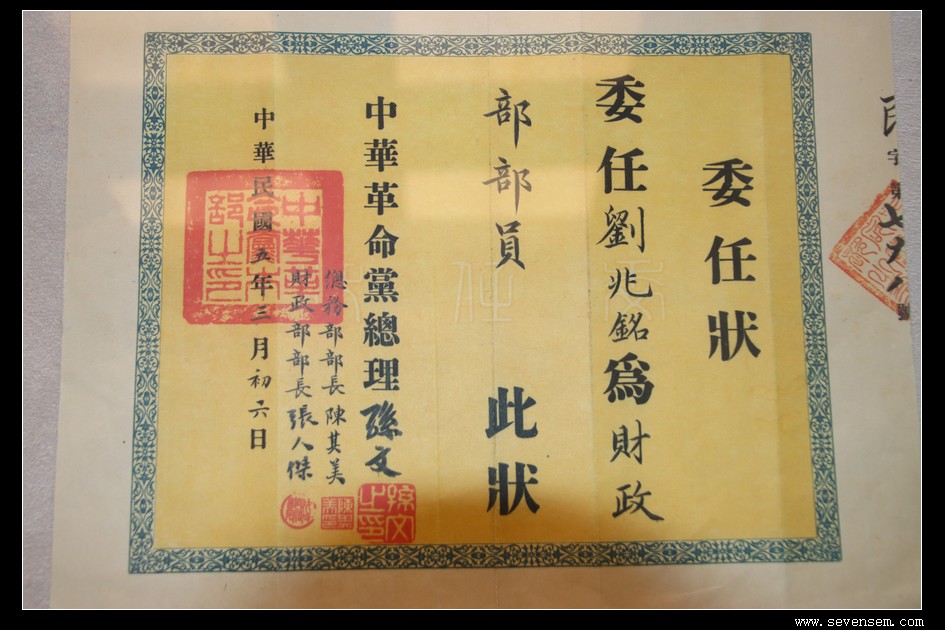 民字第七九八號
委任狀
委任劉兆銘為財政
部部員 此狀
委任狀
中華革命黨總理孫文
孫文之印
總務部部長陳其美
財政部部長張人傑
中華革命黨本部之印
中華民國五年三月初六日
www.sevensem.com